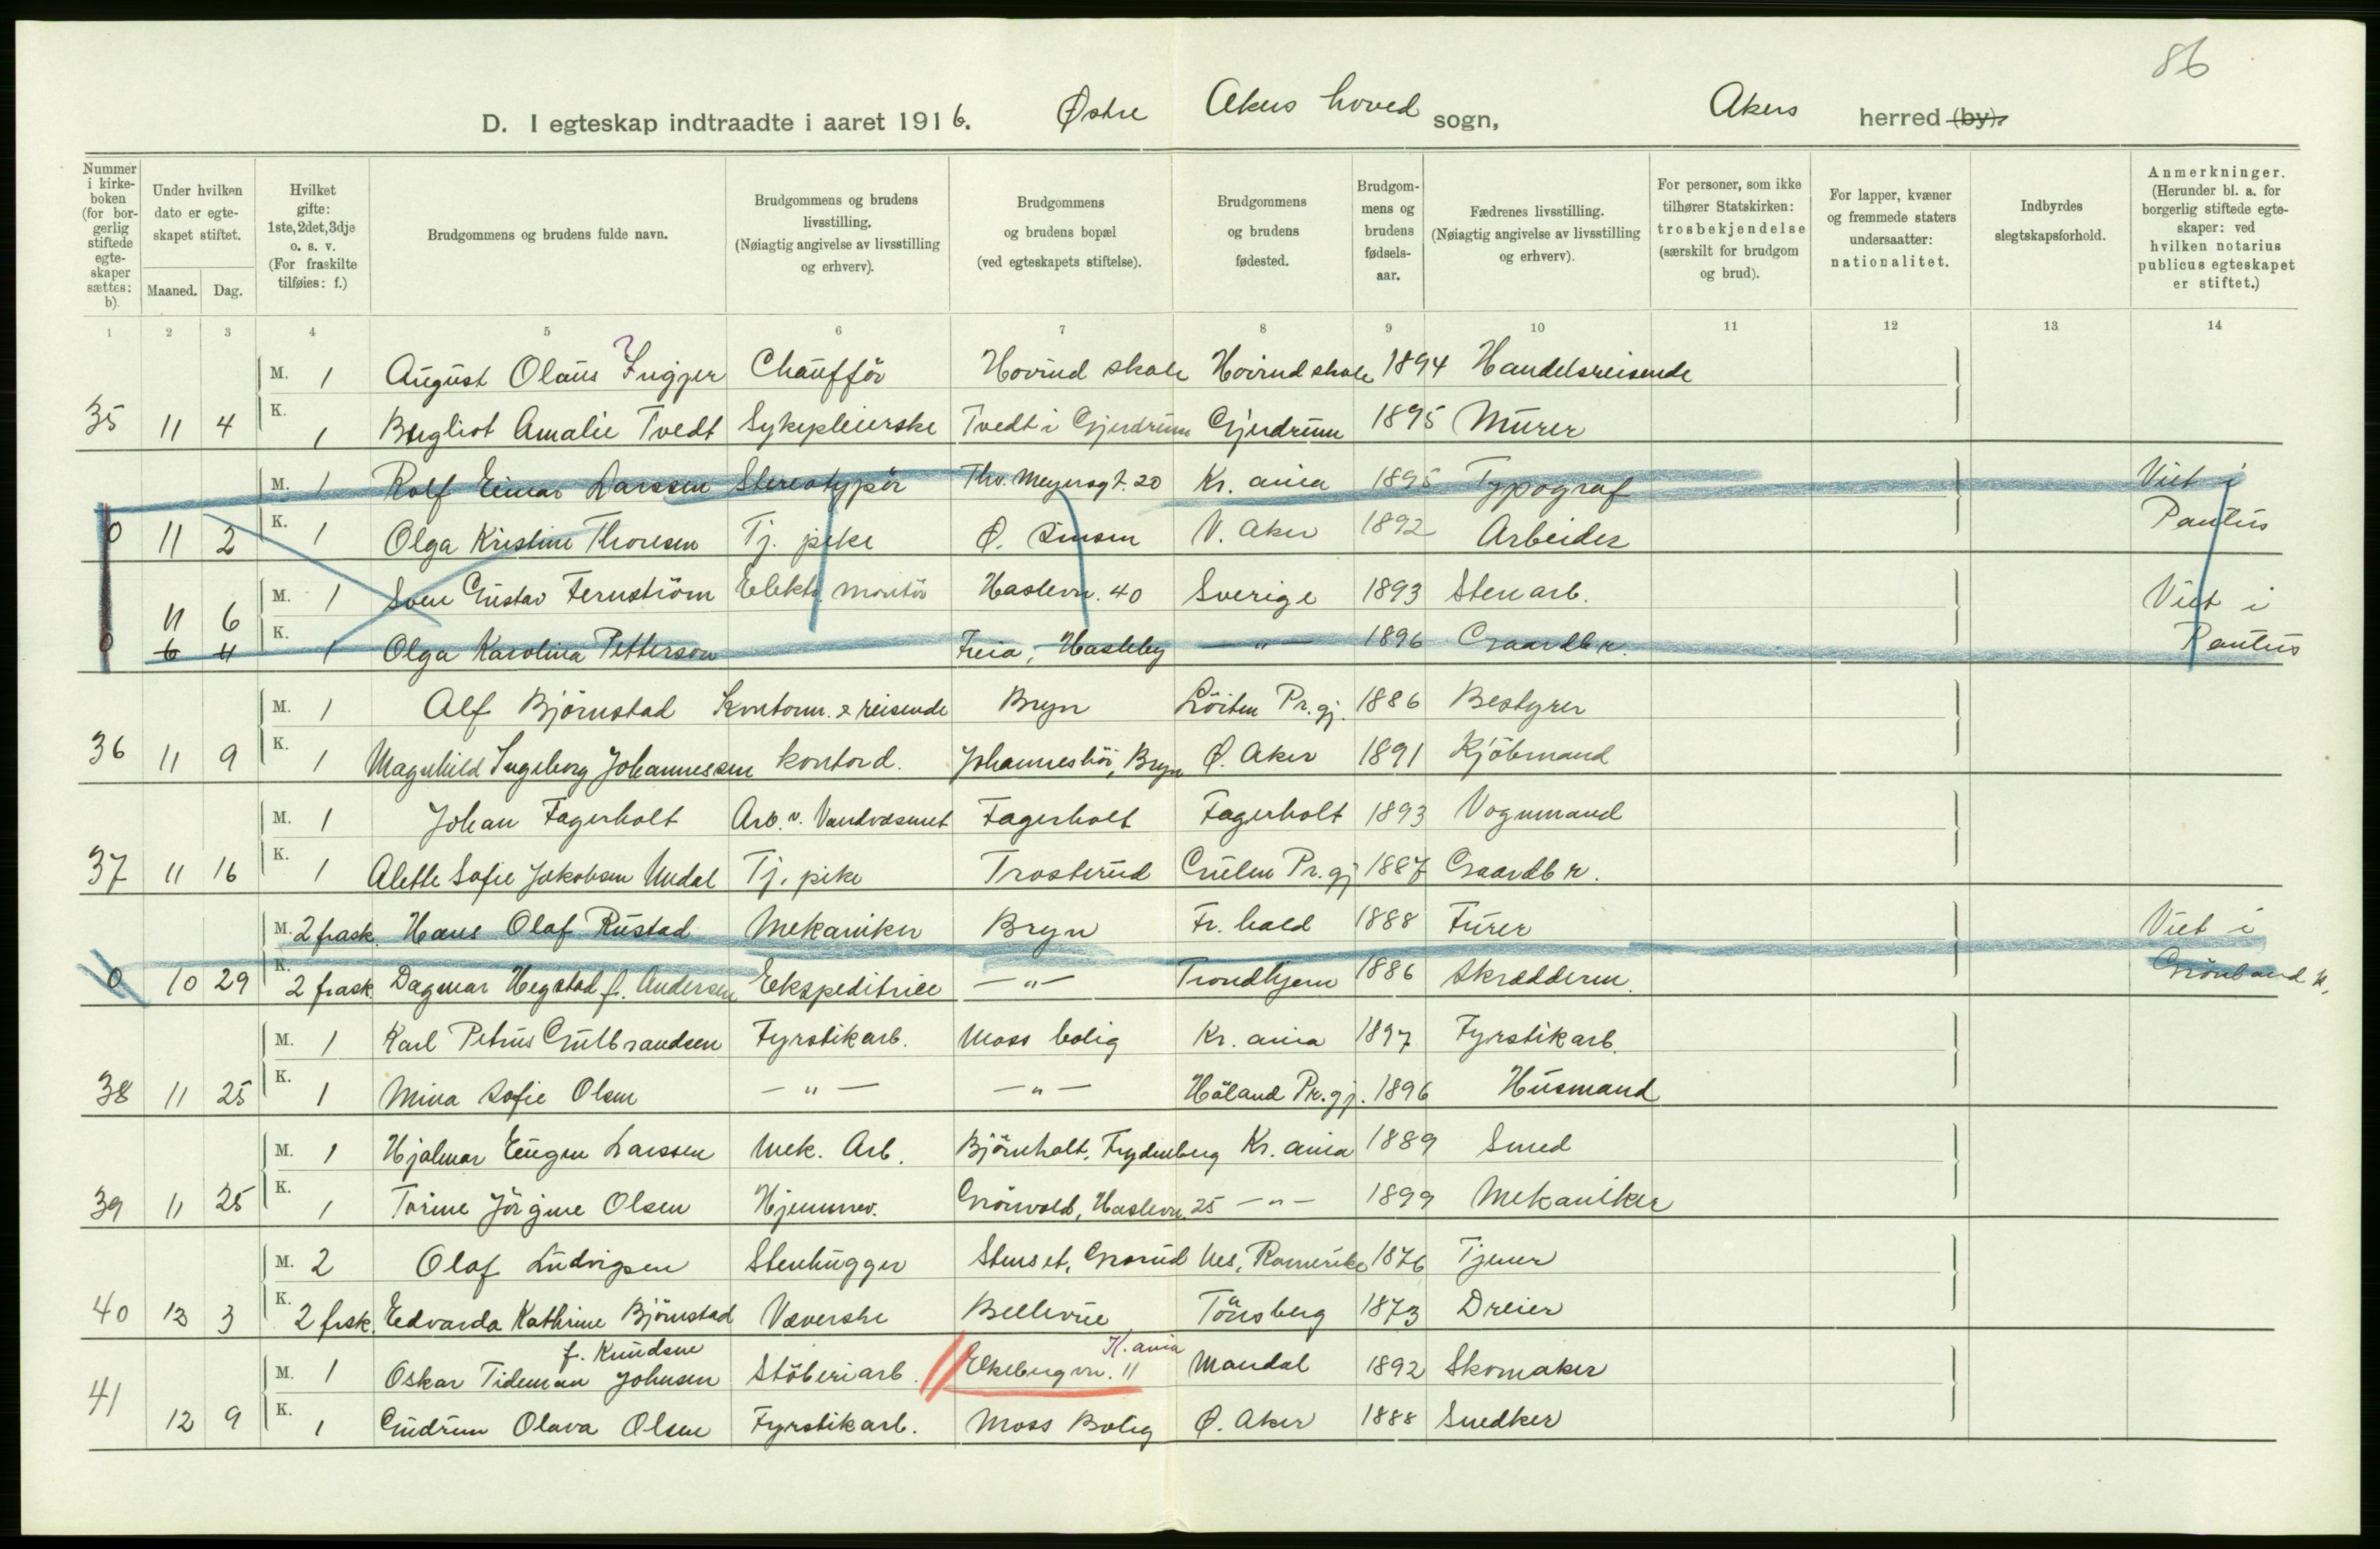 86
D. I egteskap indtraadte i aaret 1916. Østre Akers hoved sogn, Akers herred (by).
Nummer i kirkeboken (for borgerlig stiftede egteskaper sættes: b).
Under hvilken dato er egteskapet stiftet.
Maaned. Dag.
Hvilket gifte: 1ste, 2det, 3dje o. s. v. (For fraskilte tilføies: f.)
Brudgommens og brudens fulde navn.
Brudgommens og brudens livsstilling. (Nøiagtig angivelse av livsstilling og erhverv).
Brudgommens og brudens bopæl (ved egteskapets stiftelse).
Brudgommens og brudens fødested.
Brudgommens og brudens fødselsaar.
Fædrenes livsstilling. (Nøiagtig angivelse av livsstilling og erhverv).
For personer, som ikke tilhører Statskirken: trosbekjendelse (særskilt for brudgom og brud).
For lapper, kvæner og fremmede staters undersaatter: nationalitet.
Indbyrdes slegtskapsforhold.
Anmerkninger. (Herunder bl. a. for borgerlig stiftede egteskaper: ved hvilken notarius publicus egteskapet er stiftet.)
1 2 3 4 5 6 7 8 9 10 11 12 13 14
M. 1 August Olaus Chaufför Hovind skole Hovind skole 1894 Handelsreisende
35 11 4 K. 1 Bergliot Amalie Tvedt Sykepleierske Tvedt i Gjerdrum Gjerdrum 1895 Murer
M. 1 Rolf Einar Larssen Stereotypör Thv. Meyersgt. 20 Kr. ania 1895 Typograf Viet i
0 11 2 K. 1 Olga Kristine Thoresen Tj. pike Ø. Sinsen V. Aker 1892 Arbeider Paulus
11 6 M. 1 Sven Gustav Fernström Elektr. montör Haslevn. 40 Sverige 1893 Stenarb. Viet i
0 6 4 K. 1 Olga Karolina Petterson Freia, Hasleby — " — 1896 Gaardbr. Paulus
M. 1 Alf Björnstad Kontorm. & reisende Bryn Löiten Pr.gj. 1886 Bestyrer
36 11 9 K. 1 Magnhild Ingeborg Johannessen kontord. Johanneshöi, Bryn Ø. Aker 1891 Kjöbmand
M. 1 Johan Fagerholt Arb. v. Vandvæsenet Fagerholt Fagerholt 1893 Vognmand
37 11 16 K. 1 Alette Sofie Jakobsen Undal Tj. pike Trosterud Gulen Pr. gj 1887 Gaardbr.
M. 2 frask. Hans Olaf Rustad Mekaniker Bryn Fr. hald 1888 Furer Viet i
0 10 29 K. 2 frask. Dagmar Hegstad f. Andersen Ekspeditrice — " — Trondhjem 1886 Skrædderm. Grönland k.
M. 1 Karl Petrus Gulbrandsen Fyrstikarb. Moss bolig Kr. ania 1897 Fyrstikarb.
38 11 25 K. 1 Mina Sofie Olsen — " — — " — Höland Pr. gj. 1896 Husmand
M. 1 Hjalmar Eugen Larssen Mek. Arb. Björnholt, Frydenberg Kr. ania 1889 Smed
39 11 25 K. 1 Torine Jörgine Olsen Hjemmev. Grönvold, Haslevn. 25 — " — 1899 Mekaniker
M. 2 Olaf Ludvigsen Stenhugger Stenset, Grorud Nes, Romerike 1876 Tjener
40 12 3 K. 2 frsk. Edvarda Kathrine Björnstad Væverske Bellevue Tönsberg 1873 Dreier
f. Knudsen
41 M. 1 Oskar Tideman Johnsen Stöberiarb. Ekebergvn. 11 K. ania Mandal 1892 Skomaker
12 9 K. 1 Gudrun Olava Olsen Fyrstikarb. Moss Bolig Ø. Aker 1888 Snedker